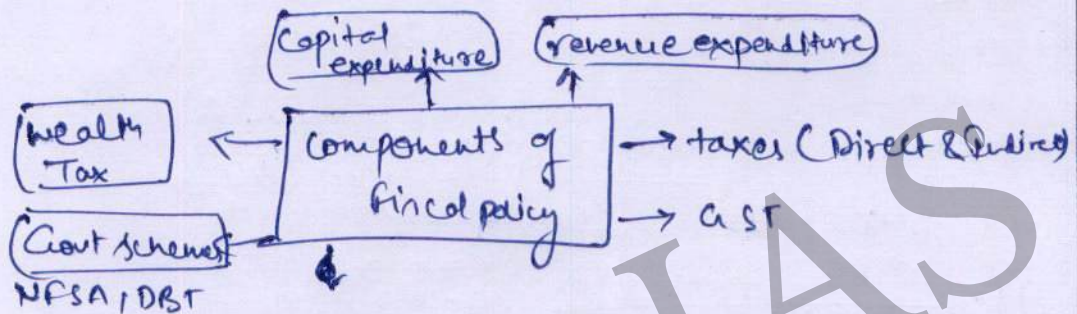 Capital
expenditure
revenue expenditure
Wealth
Tax
Components of
Fiscal policy
taxes (Direct & Indirect)
GST
Govt schemes
NFSA / DBT
IAS